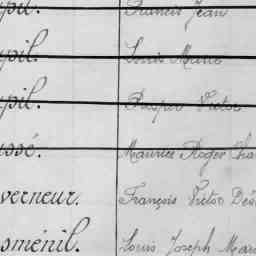 pil. Francis Jean
pil. Louis Marie
pil. Prosper Victor
ssé. Maurice Roger Cha
verneur. François Victor Dés
sménil. Louis Joseph Mar